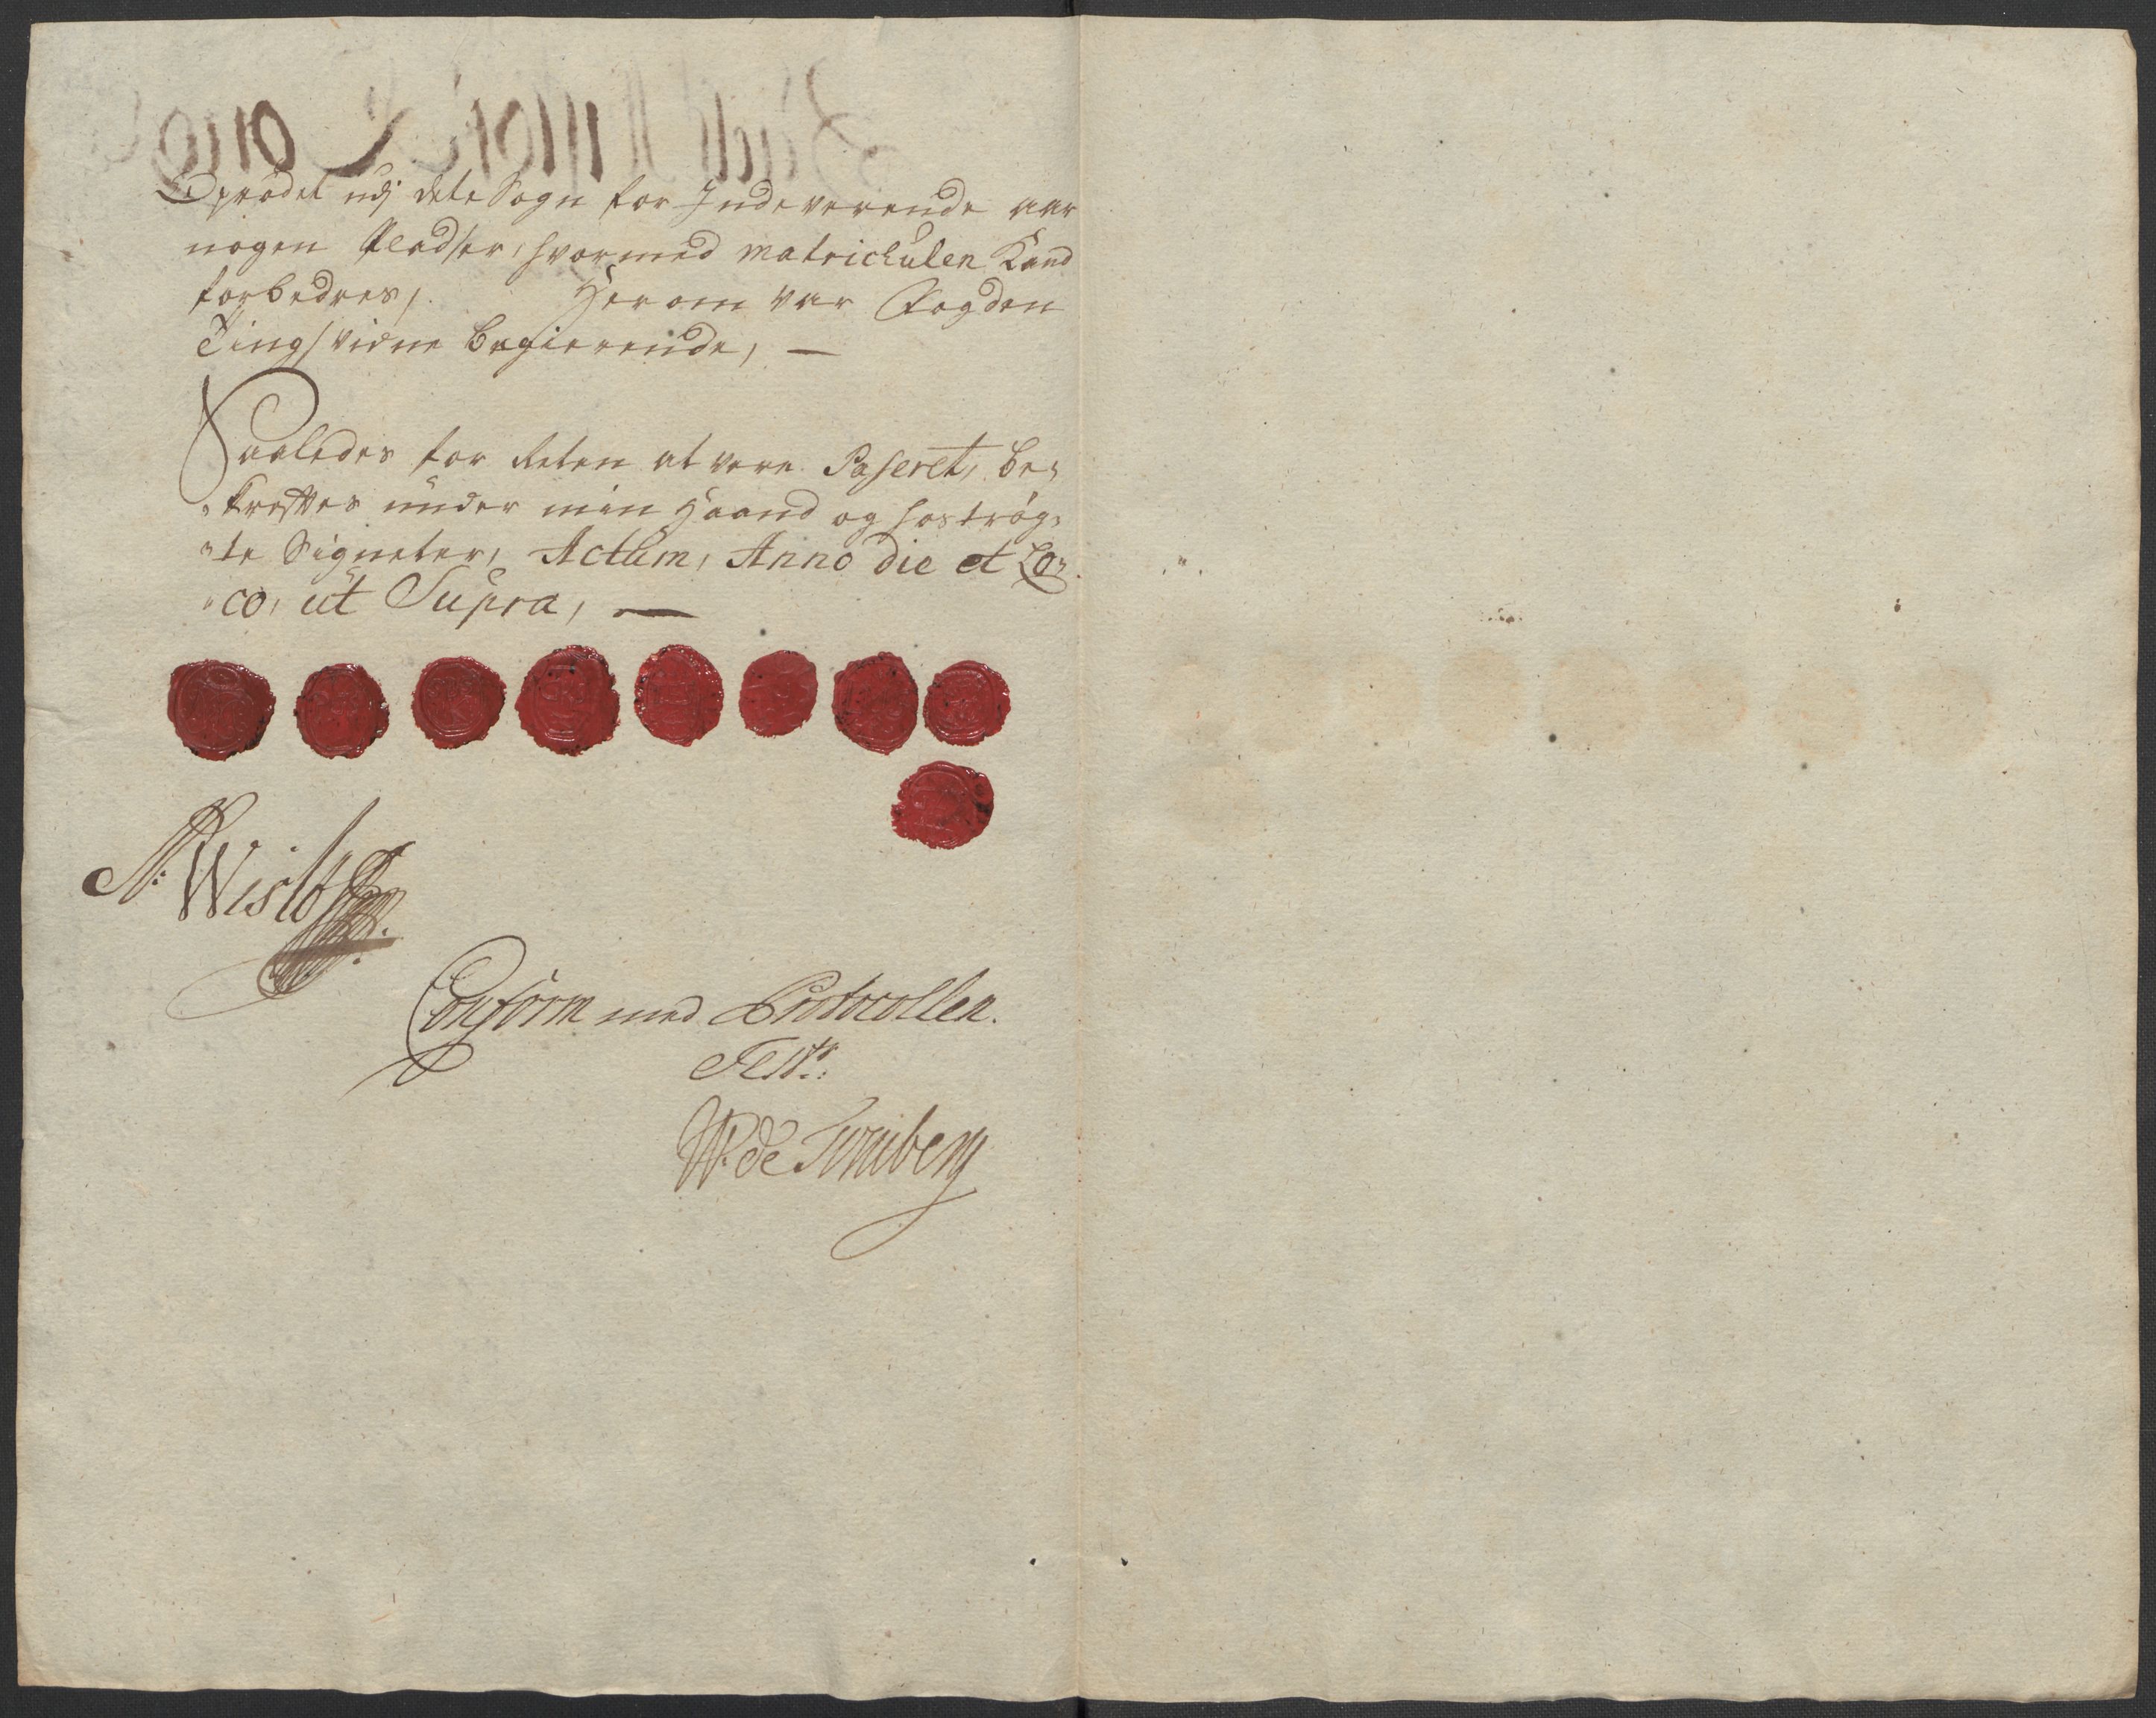 Oprödet udj dete Sogn for Indeverende aar
nogen Pladser, hvormed matriculen Kand
forbedres, Herom var Fogden
Tingsvidne begierende, —
Saaledes for Reten at vere Paseret, be-
kreftes under min Haand og hoströg-
te Signeter, Actum, Anno die et Lo-
co, ut Supra, —
N: Wisløff
Conform med Protocollen.
Test:
W: de Tonsberg